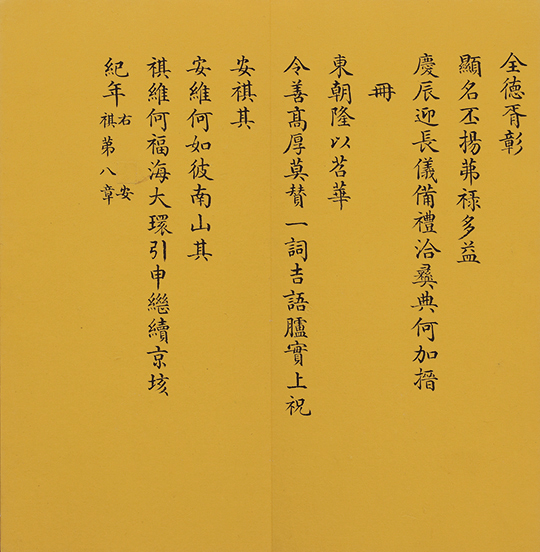 全德胥彰
顯名丕揚茀祿多益
慶辰迎長儀備禮洽彝典何加搢
冊
東朝隆以苕華
令善高厚莫贊一詞吉語臚實上祝
安祺其
安維何如彼南山其
祺維何福海大環引申繼續京垓
紀年右安祺第八章